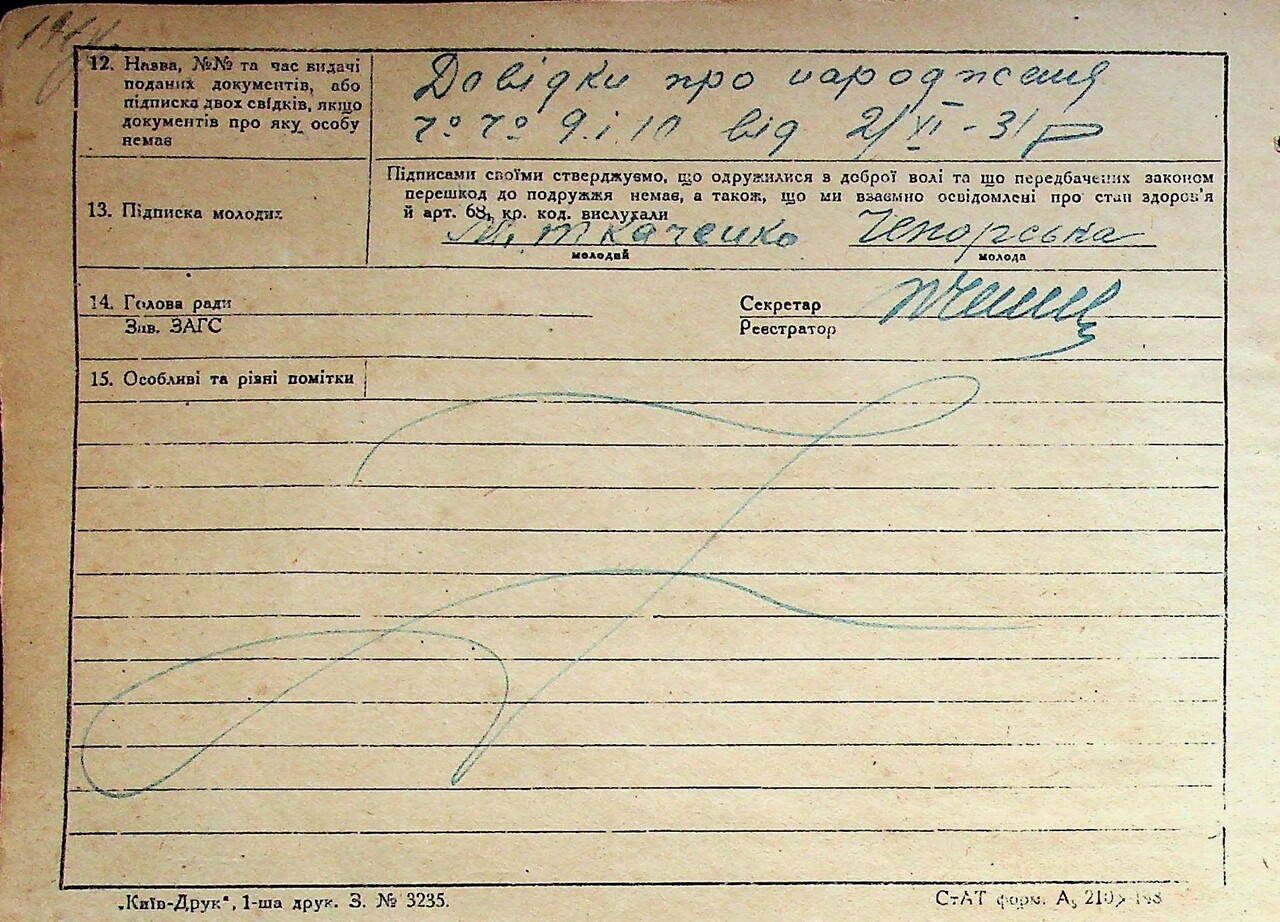 12. Назва, №№ та час видачі
поданих документів, або
підписка двох свідків, якщо
документів про яку особу
немає
Довідки про народження
ч° ч° 9 і 10 від 2/VI-31 р
13. Підписка молодих
Підписами своїми стверджуємо, що одружилися з доброї волі та що передбачених законом
перешкод до подружжя немає, а також, що ми взаємно освідомлені про стан здоров'я
й арт. 68, кр. код. вислухали
М. Ткаченко Чепорська
молодий молода
14. Голова ради Секретар
Зав. ЗАГС Реєстратор
15. Особливі та різні помітки
„Київ-Друк“, 1-ша друк. З. № 3235.
СтАТ форм. А₅ 210×148